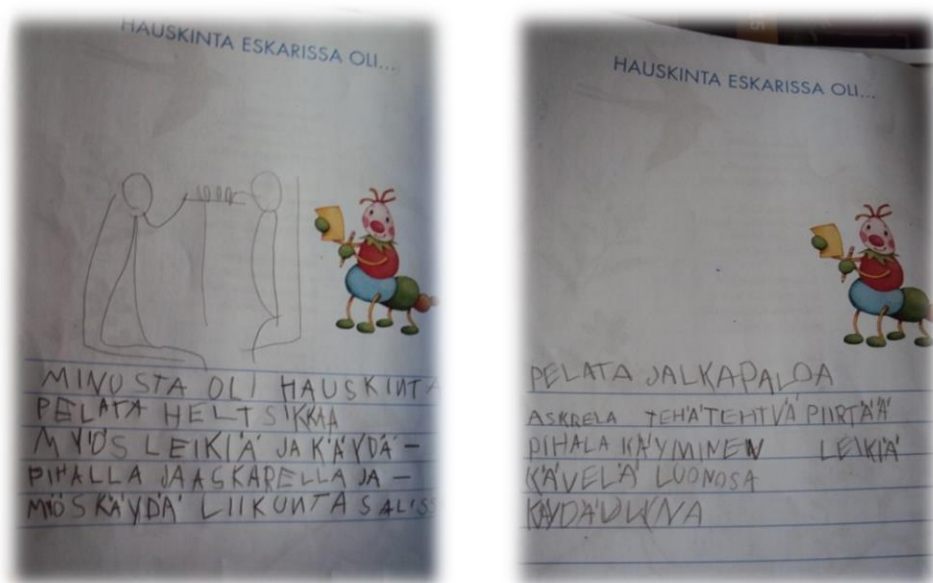 HAUSKINTA ESKARISSA OLI...
MINUSTA OLI HAUSKINTA
PELATA HELTSIKKAA
MYÖS LEIKIÄ JA KÄYDÄ-
PIHALLA JA ASKARELLA JA-
MIÖS KÄYDÄ LIIKUNTASALIS
HAUSKINTA ESKARISSA OLI...
PELATA JALKAPALOA
ASKRELA TEHÄ TEHTVÄ PIIRTÄÄ
PIHALA KÄYMINEN LEIKIÄ
KÄVELÄ LUONOSA
KÄYDÄ